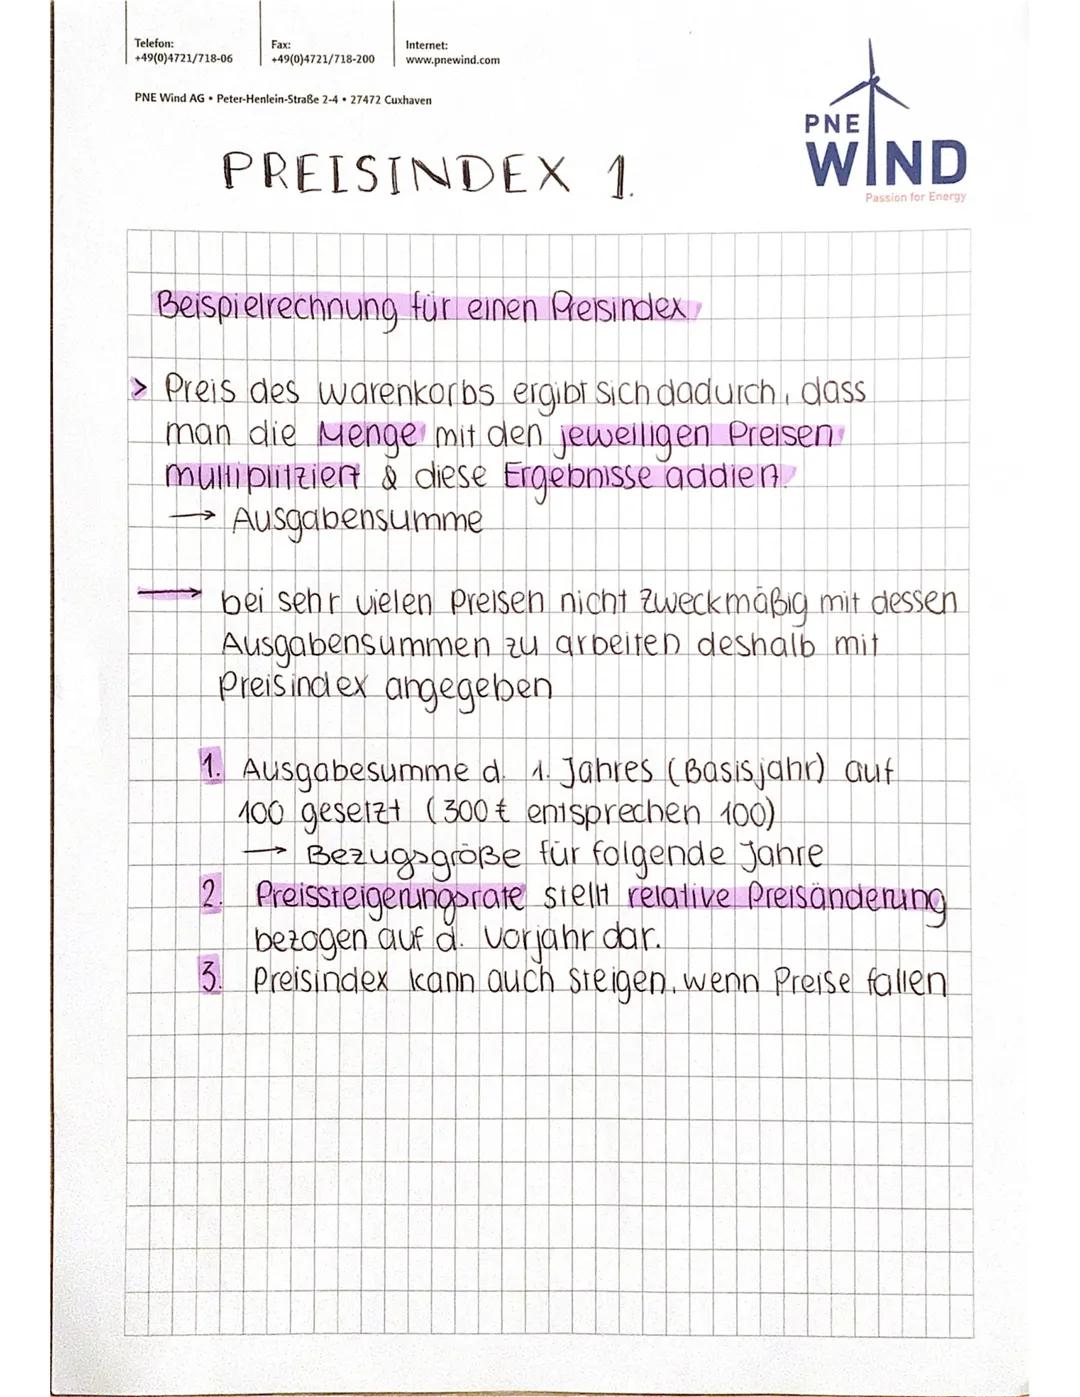 Telefon: Fax: Internet:
+49(0)4721/718-06 +49(0)4721/718-200 www.pnewind.com
PNE Wind AG • Peter-Henlein-Straße 2-4 • 27472 Cuxhaven
PNE
WIND
Passion for Energy
PREISINDEX 1.
Beispielrechnung für einen Preisindex
> Preis des Warenkorbs ergibt sich dadurch, dass
man die Menge mit den jeweiligen Preisen
multiplitziert & diese Ergebnisse addiert.
→ Ausgabensumme
→ bei sehr vielen Preisen nicht zweckmäßig mit dessen
Ausgabensummen zu arbeiten deshalb mit
Preisindex angegeben
1. Ausgabesumme d. 1. Jahres (Basisjahr) auf
100 gesetzt (300€ entsprechen 100)
→ Bezugsgröße für folgende Jahre
2. Preissteigerungsrate stellt relative Preisänderung
bezogen auf d. Vorjahr dar.
3. Preisindex kann auch steigen, wenn Preise fallen